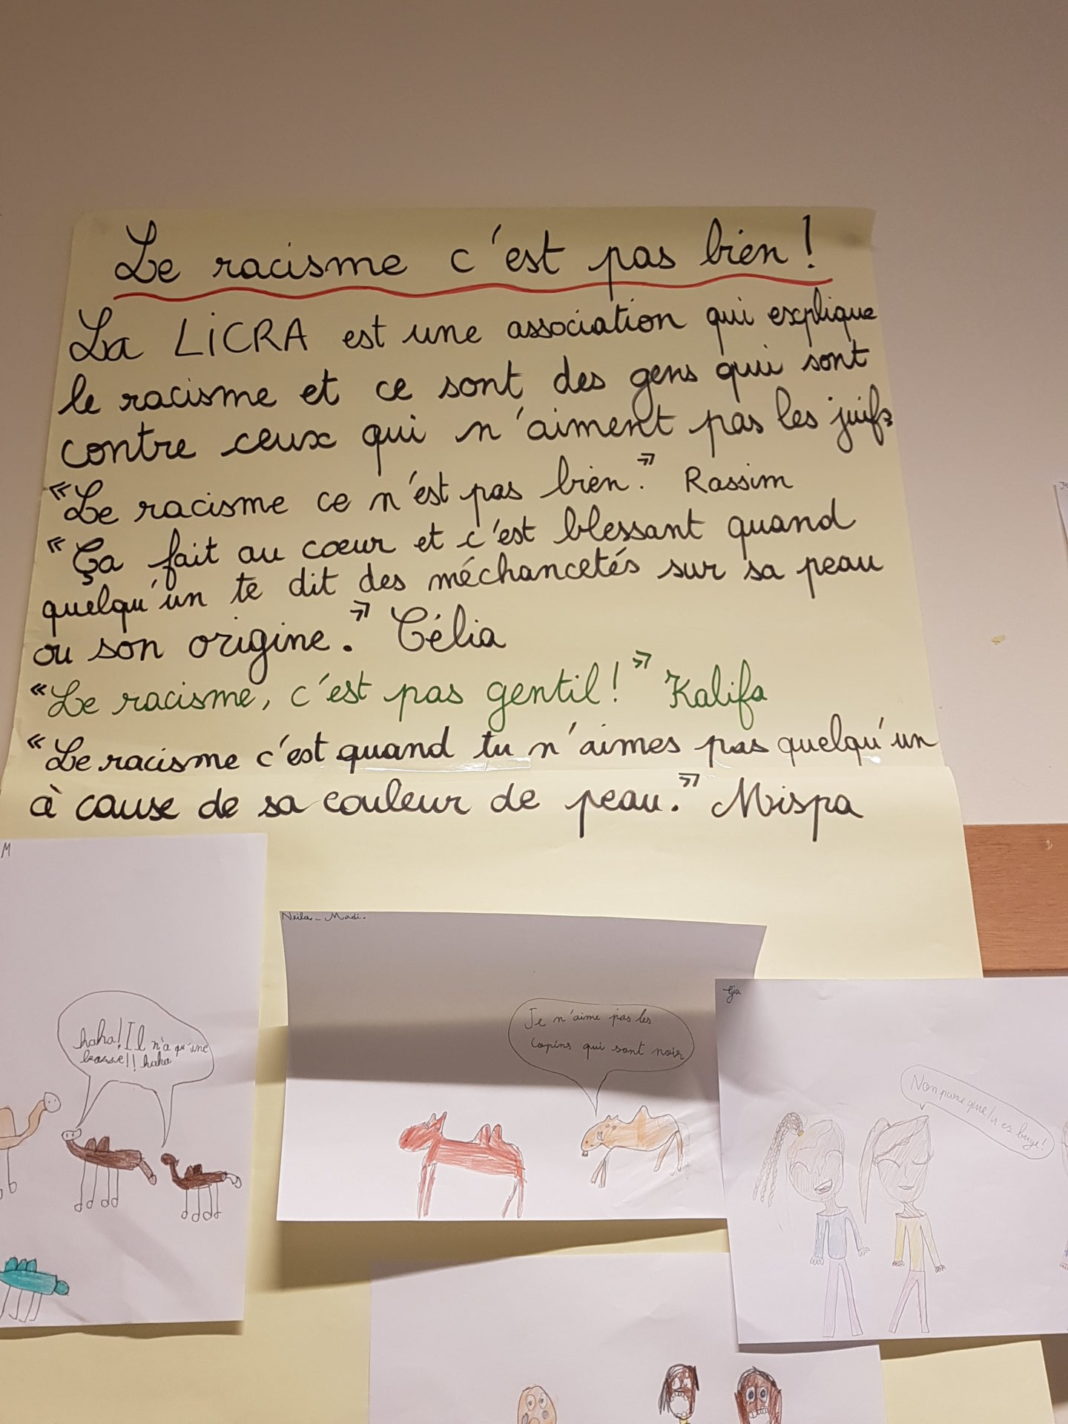 Le racisme c'est pas bien !
La LiCRA est une association qui explique
le racisme et ce sont des gens qui sont
contre ceux qui n'aiment pas les juifs
« Le racisme ce n'est pas bien. » Rassim
« Ça fait au cœur et c'est blessant quand
quelqu'un te dit des méchancetés sur sa peau
ou son origine. » Célia
« Le racisme, c'est pas gentil ! » Kalifa
« Le racisme c'est quand tu n'aimes pas quelqu'un
à cause de sa couleur de peau. » Mispa
M
haha! Il n'a qu'une
bosse!! haha
Neila_ Madi.
Je n'aime pas les
copins qui sont noir
Non parce que